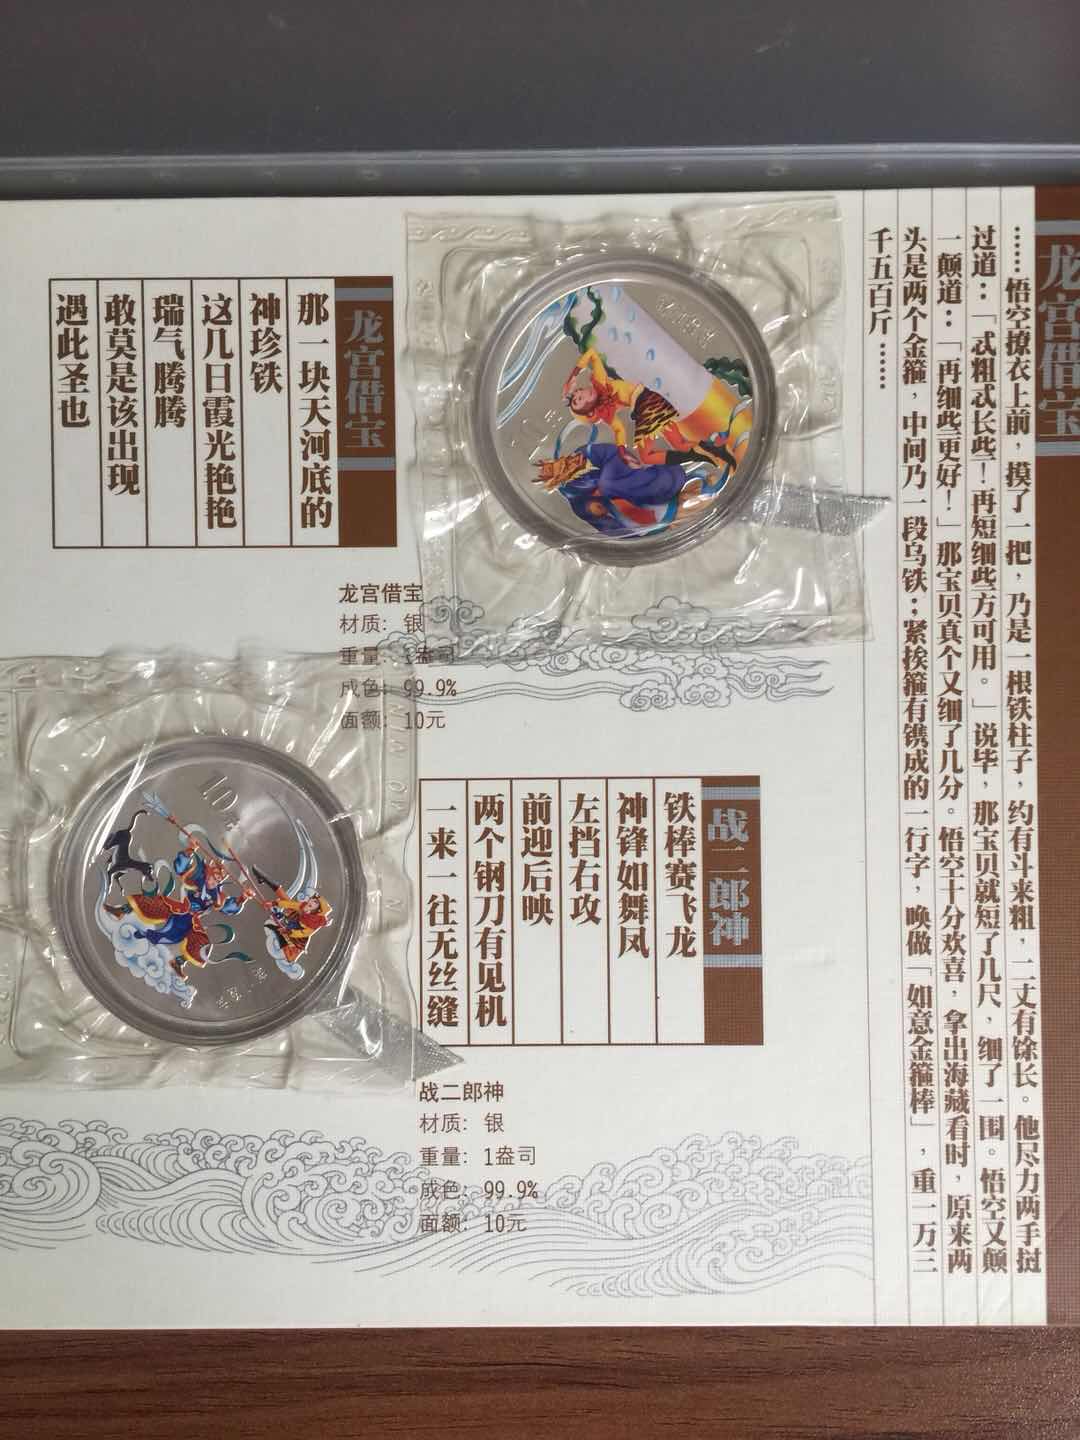 龙宫借宝
……悟空撩衣上前，摸了一把，乃是一根铁柱子，约有斗来粗，二丈有馀长。他尽力两手挝
过道：「忒粗忒长些！再短细些方可用。」说毕，那宝贝就短了几尺，细了一围。悟空又颠
一颠道：「再细些更好！」那宝贝真个又细了几分。悟空十分欢喜，拿出海藏看时，原来两
头是两个金箍，中间乃一段乌铁；紧挨箍有镌成的一行字，唤做「如意金箍棒」，重一万三
千五百斤……
龙宫借宝
那一块天河底的
神珍铁
这几日霞光艳艳
瑞气腾腾
敢莫是该出现
遇此圣也
龙宫借宝
材质：银
重量：1盎司
成色：99.9%
面额：10元
10元
战二郎神
铁棒赛飞龙
神锋如舞凤
左挡右攻
前迎后映
两个钢刀有见机
一来一往无丝缝
战二郎神
材质：银
重量：1盎司
成色：99.9%
面额：10元